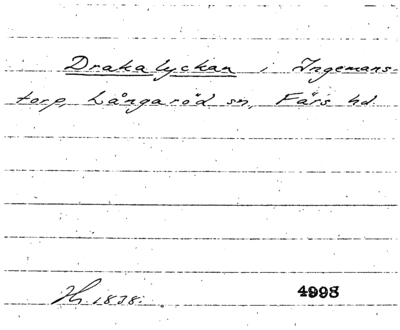 Drakalyckan i Ingemans-
torp, Långaröd sn, Färs hd.
1838. 4998